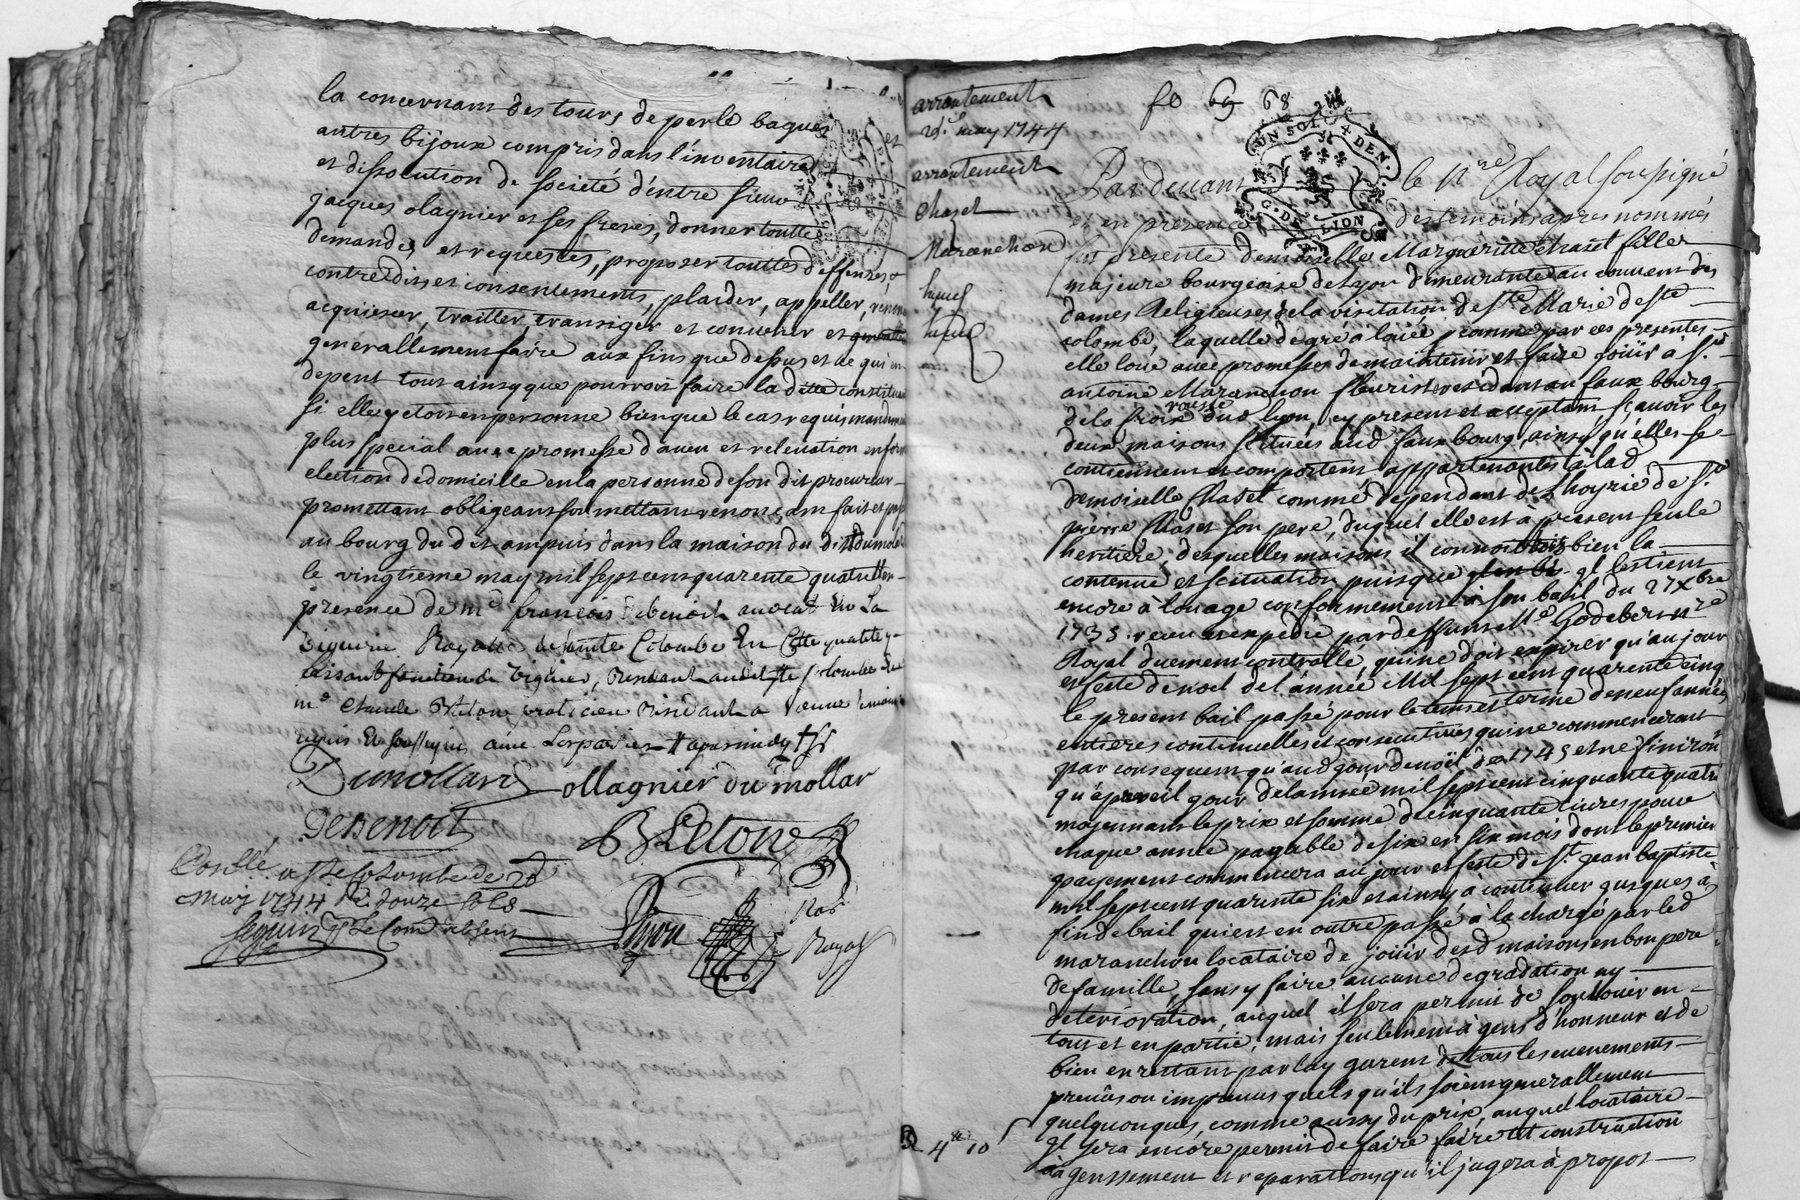 la concernant des tours de perle bagues et
autres bijoux compris dans l'inventaire
et dissolution de societé d'entre sieur
jacques olagnier et ses freres, donner toutte
demandes et requestes, proposer touttes deffenses,
contredits et consentements, plaider, appeller,
acquiescer, traitter, transiger et convenir et
generallement faire aux fins que dessus et ce qui en
depent tout ainsy que pourroit faire la ditte constituante
si elle y etoit en personne bien que le cas requis mandement
plus special avec promesse d'aveu et relevation en forme
election de domicille en la personne de son dit procureur
promettant obligeant soumettant renonçant fait et passé
au bourg du dit ampuis dans la maison du dit dumolard
le vingtieme may mil sept cent quarente quatre en
presence de me francois debenoit avocat en la
viguerie Royalle de sainte Colombe en cette qualité
faisant fonction de viguier, residant audit ste Colombe et de
me Claude Breton praticien residant a vienne temoins
requis et soussignés avec les parties
Dumollard ollagnier du mollar
Debenoit
Breton
Conllé a ste Colombe le 20
may 1744 R douze sols
seguin pr le Comis absent
Not
Royal
arrantement
20e may 1744
arrantement
Chasel
Maranchon
fo 69 68
UN SOL 4 DEN
G. DE LION
Pardevant le nre Royal soussigné
et en presence des temoins apres nommés
fut presente demoiselle Margueritte Chasel fille
majeure bourgeoise de Lyon demeurante au couvent des
dames Religieuses de la visitation de Ste Marie de Ste
colombe, laquelle de gré a loüé comme par ces presentes
elle loüe avec promesse de maintenir et faire joüir à Sr
antoine Maranchon fleuriste residant au faux bourg
de la Croix rousse dud Lyon, cy present et acceptant sçavoir les
deux maisons scituées aud faux bourg, ainsy qu'elles se
contiennent et comportent appartenantes à lad
demoiselle Chasel comme dependant de l'hoyrie de Sr
pierre Chasel son pere, duquel elle est à present seule
heritiere, desquelles maisons il connoit bien la
contenue et scituation puisque il les tient
encore à loüage conformement a son bail du 27 Xbre
1735 receu et expedié par dessunt Me Godebert nre
Royal duement controllé, qui ne doit expirer qu'au jour
et feste de noel de l'année Mil sept cent quarente cinq
le present bail passé pour le tems et terme de neuf années
entieres continuelles et consecutives qui ne commenceront
par consequent qu'aud jour de noël de 1745 et ne finiront
qu'à pareil jour de l'année mil sept cent cinquante quatre
moyennant le prix et somme de cinquante livres pour
chaque année payable de six en six mois dont le premier
payement commencera au jour et feste de St jean baptiste
mil sept cent quarente six et ainsy a continuer jusques à
fin de bail qui est en outre passé à la charge par led
maranchon locataire de joüir desd maisons en bon pere
de famille, sans y faire aucune degradation ny
deterioration, auquel il sera permit de soulouer en
tout et en partie, mais seulement à gens d'honneur et de
bien en restant par luy garent de tous les evenements
prevûs ou imprevus quels qu'ils soient generallement
quelquonques, comme aussy du prix, auquel locataire
il sera encore permis de faire faire tt construction
agenssement et reparations qu'il jugera à propos
4tt 10s